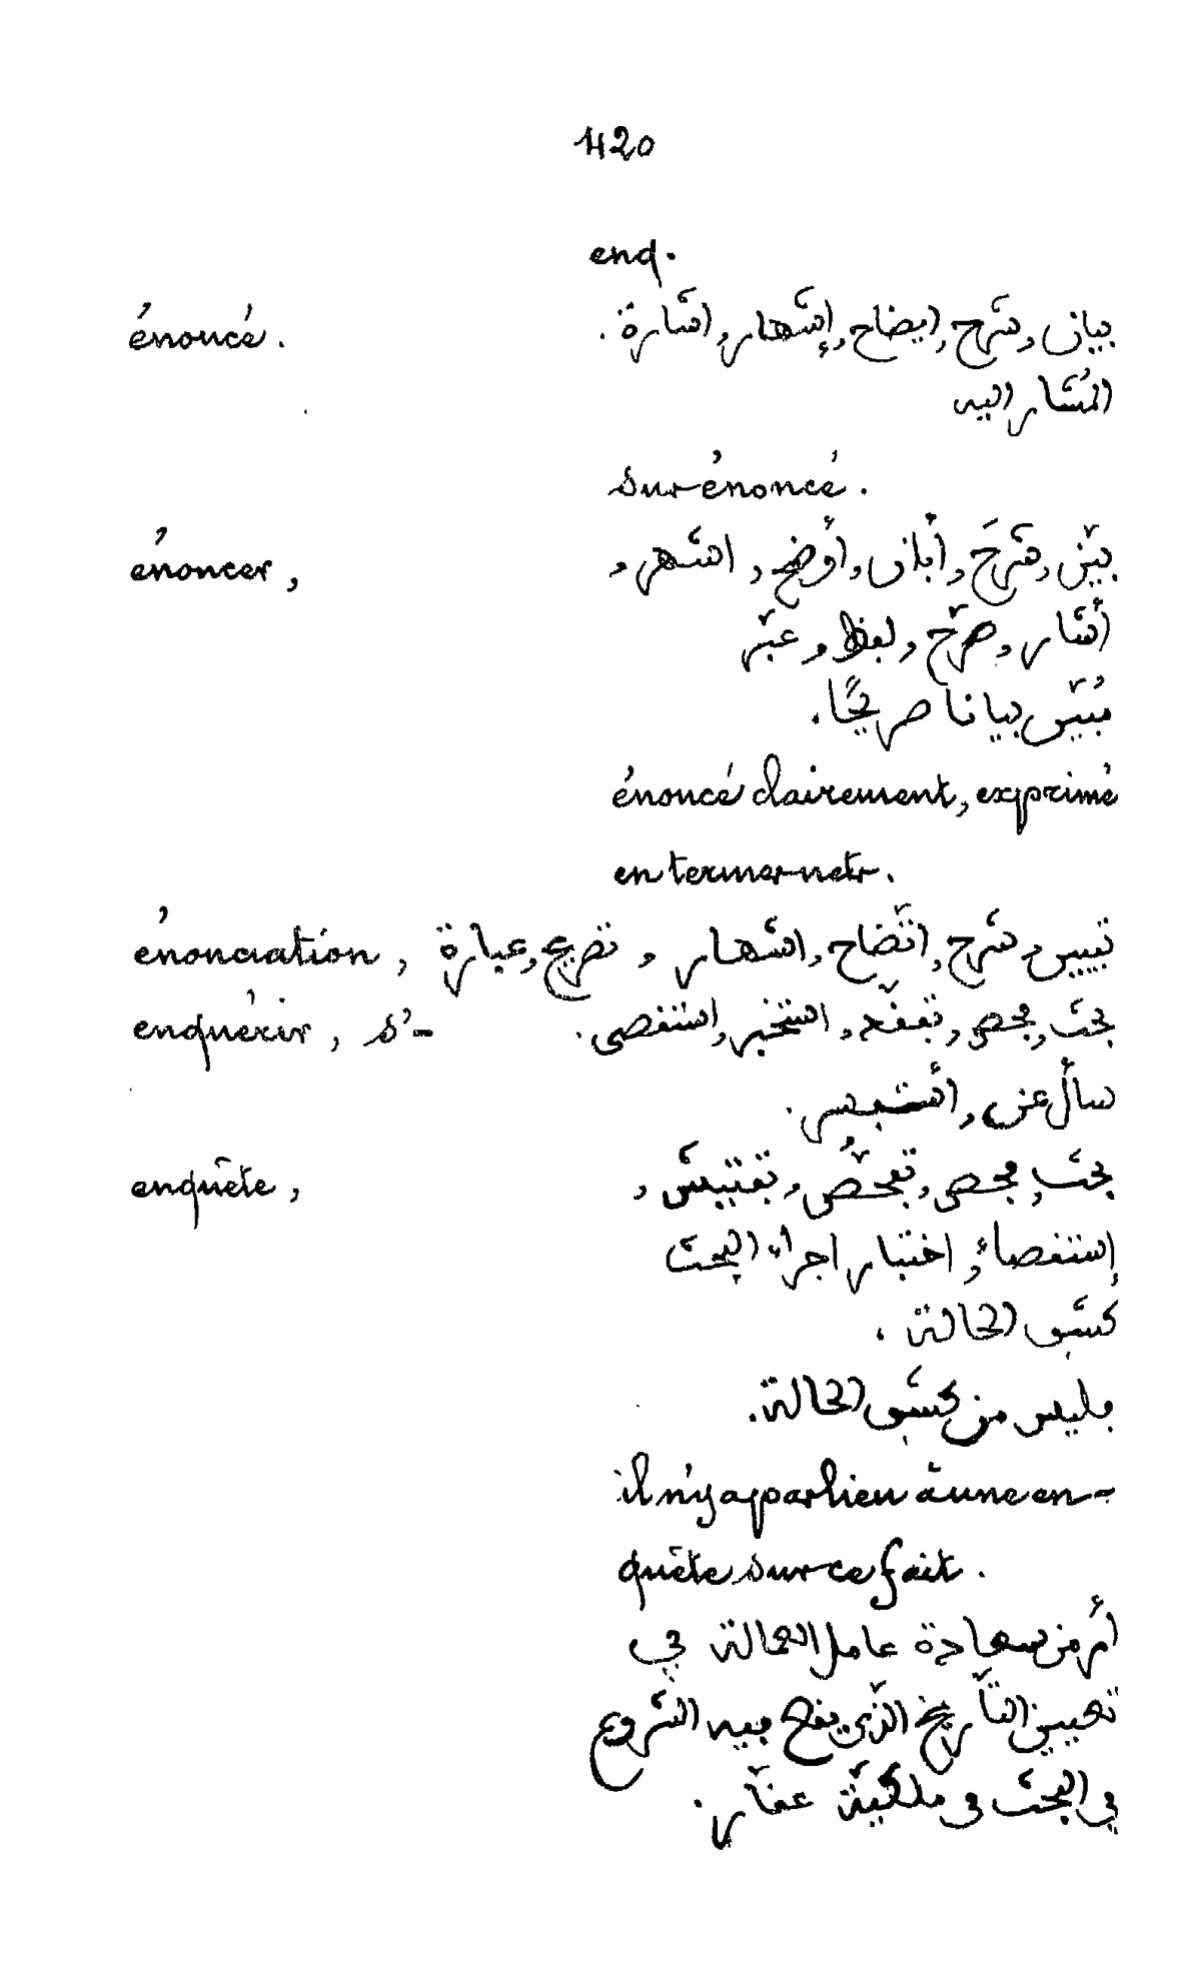 420
enq.
énoncé. بيان, شرح, ايضاح, إشهار, اشارة.
المُشار اليه
sur énoncé.
énoncer, بيّن, شرَحَ, أبان, أوضح, اشهر,
أشار, صرّح, لفظ, عبّر
مُبيّن بيانا صريحًا.
énoncé clairement, exprimé
en termes nets.
énonciation, تبيين, شرح, اتّضاح, اشهار, تصريح, عبارة
enquérir, s'- بحث, فحص, تفقّد, استخبر, استقصى.
سأل عن,
enquête, بحث, فحص, تفحّص, تفتيش,
إستقصاء, اختبار, اجراء البحث
كشف الحالة.
فليس من كشف الحالة.
il n'y a pas lieu à une en-
quête sur ce fait.
أمر من سعادة عامل العمالة في
تعيين التّأريخ الّذي يقع فيه الشروع
في البحث في ملكيّة عقّار.